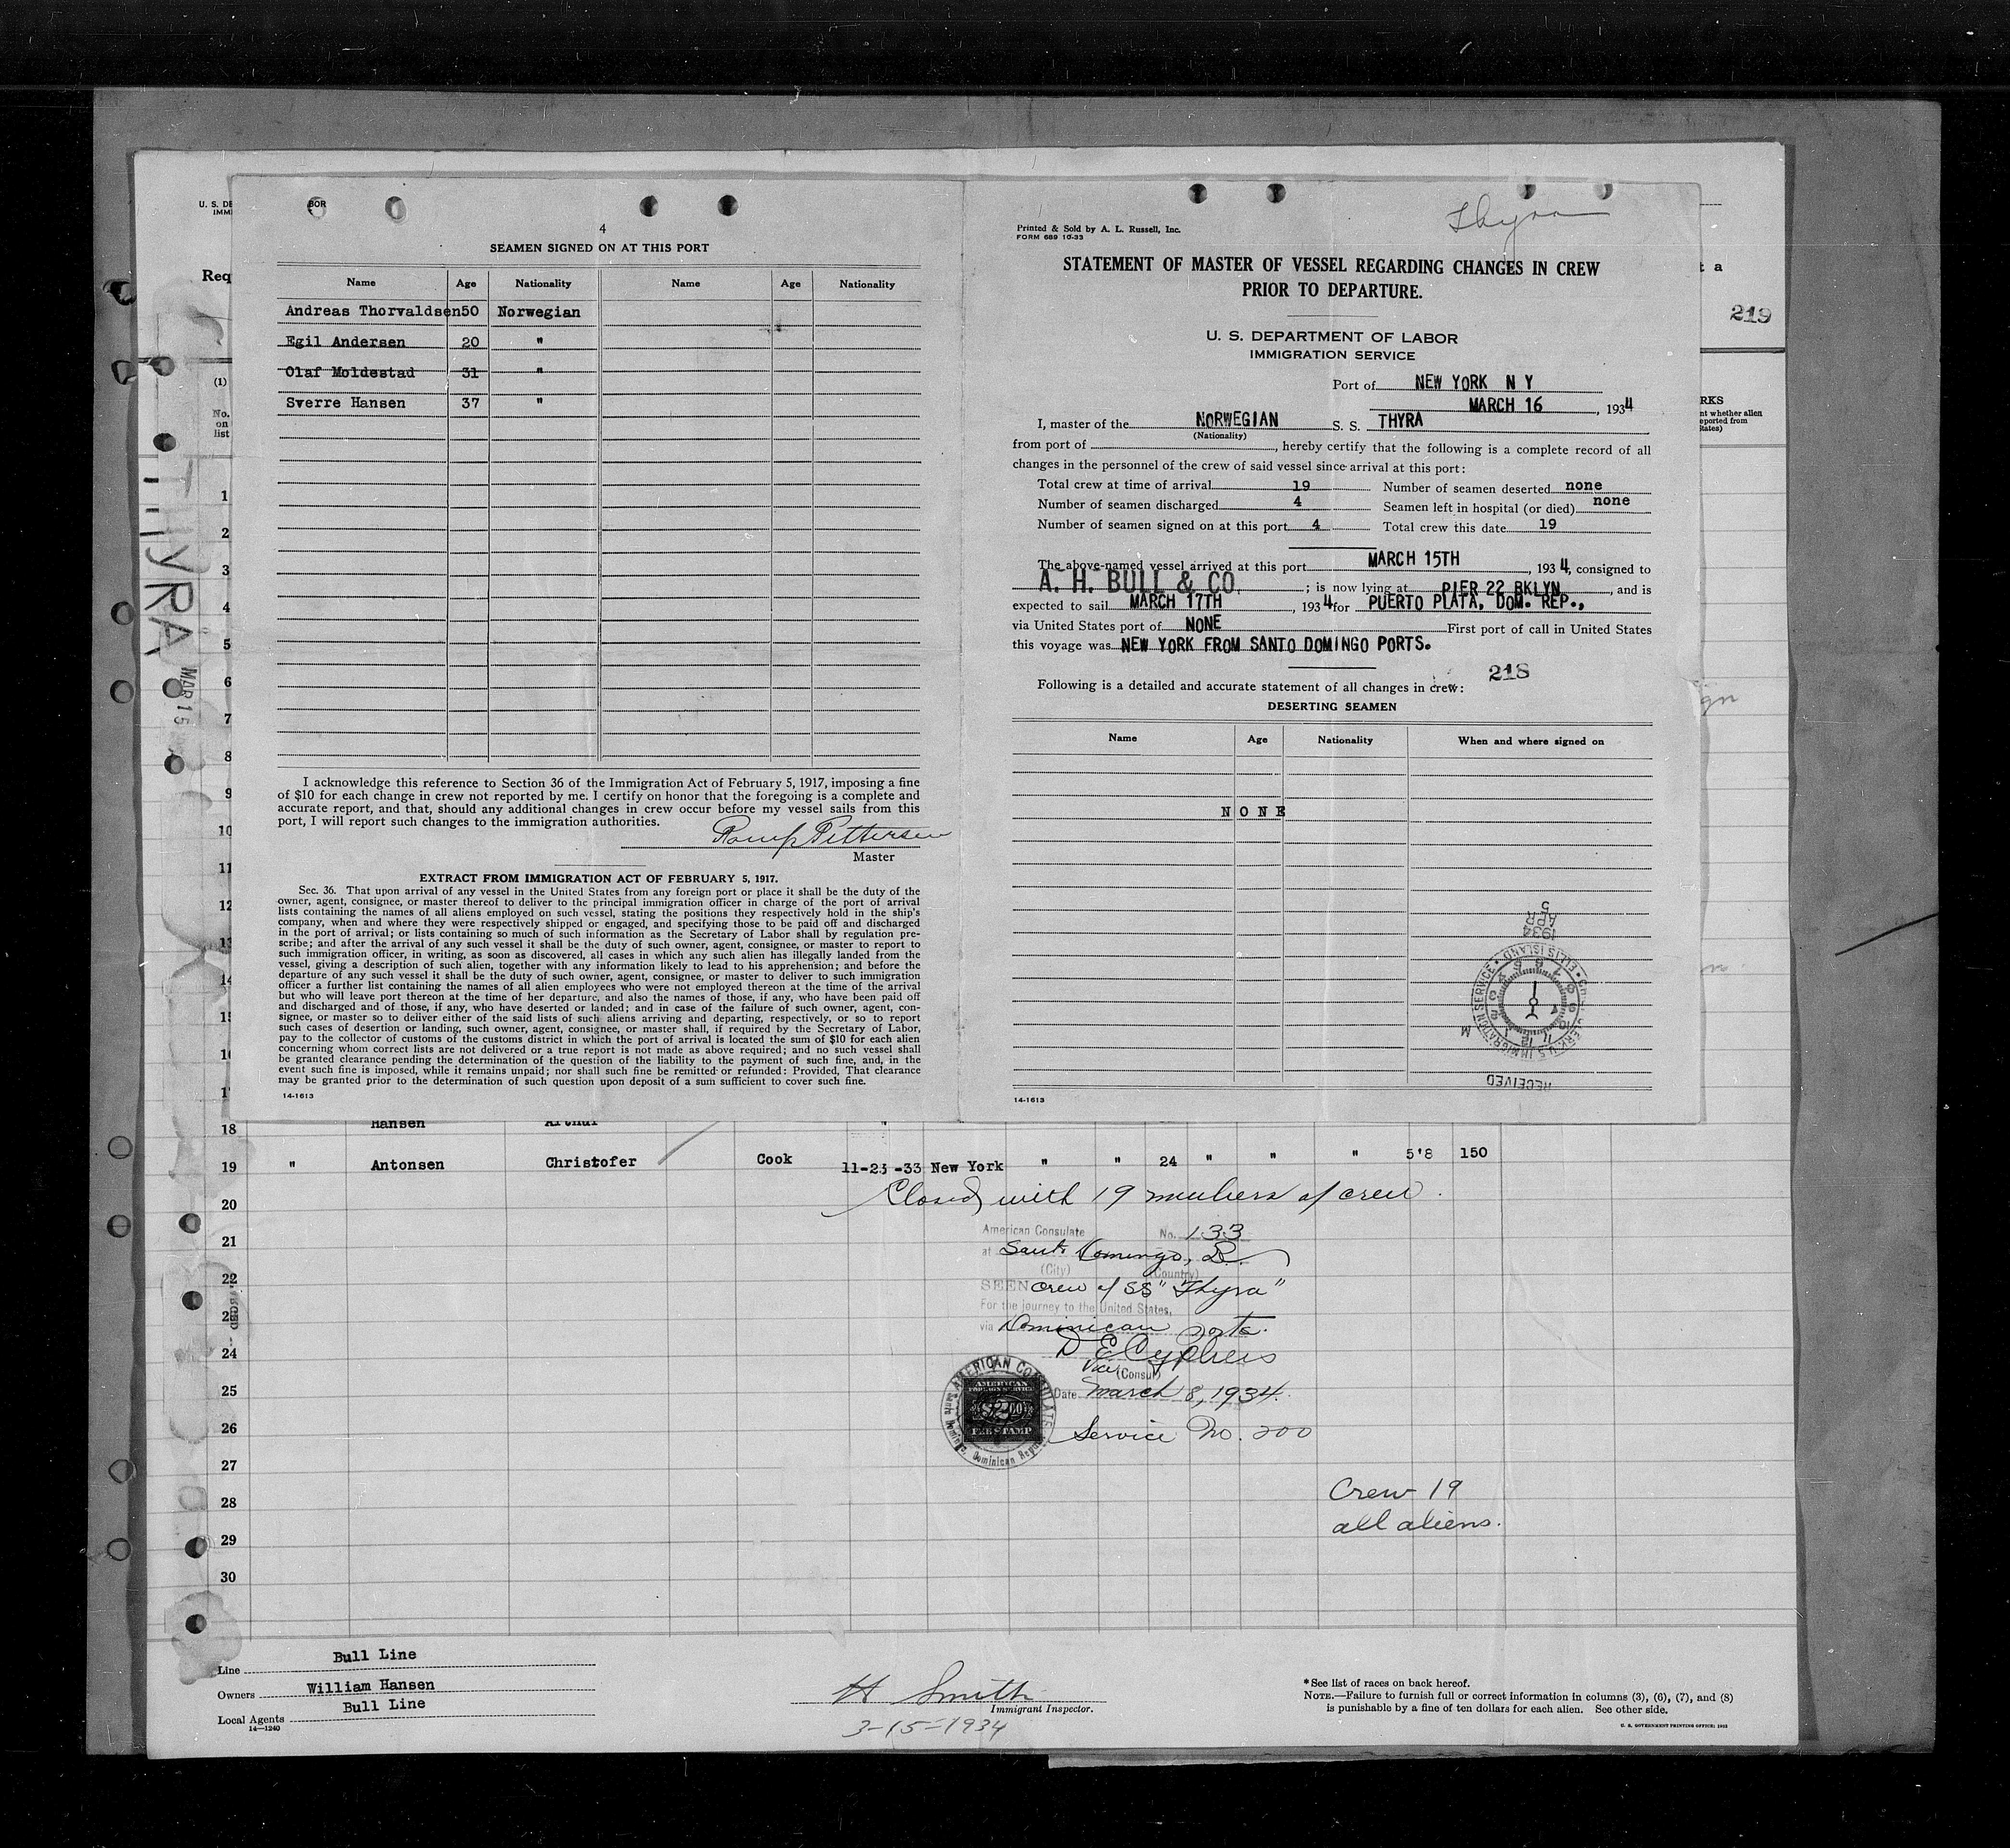 4
SEAMEN SIGNED ON AT THIS PORT
Name Age Nationality Name Age Nationality
Andreas Thorvaldsen 50 Norwegian
Egil Andersen 20 "
Olaf Moldestad 31 "
Sverre Hansen 37 "
I acknowledge this reference to Section 36 of the Immigration Act of February 5, 1917, imposing a fine
of $10 for each change in crew not reported by me. I certify on honor that the foregoing is a complete and
accurate report, and that, should any additional changes in crew occur before my vessel sails from this
port, I will report such changes to the immigration authorities.
Pettersen
Master
EXTRACT FROM IMMIGRATION ACT OF FEBRUARY 5, 1917.
Sec. 36. That upon arrival of any vessel in the United States from any foreign port or place it shall be the duty of the
owner, agent, consignee, or master thereof to deliver to the principal immigration officer in charge of the port of arrival
lists containing the names of all aliens employed on such vessel, stating the positions they respectively hold in the ship's
company, when and where they were respectively shipped or engaged, and specifying those to be paid off and discharged
in the port of arrival; or lists containing so much of such information as the Secretary of Labor shall by regulation pre-
scribe; and after the arrival of any such vessel it shall be the duty of such owner, agent, consignee, or master to report to
such immigration officer, in writing, as soon as discovered, all cases in which any such alien has illegally landed from the
vessel, giving a description of such alien, together with any information likely to lead to his apprehension; and before the
departure of any such vessel it shall be the duty of such owner, agent, consignee, or master to deliver to such immigration
officer a further list containing the names of all alien employees who were not employed thereon at the time of the arrival
but who will leave port thereon at the time of her departure, and also the names of those, if any, who have been paid off
and discharged and of those, if any, who have deserted or landed; and in case of the failure of such owner, agent, con-
signee, or master so to deliver either of the said lists of such aliens arriving and departing, respectively, or so to report
such cases of desertion or landing, such owner, agent, consignee, or master shall, if required by the Secretary of Labor,
pay to the collector of customs of the customs district in which the port of arrival is located the sum of $10 for each alien
concerning whom correct lists are not delivered or a true report is not made as above required; and no such vessel shall
be granted clearance pending the determination of the question of the liability to the payment of such fine, and, in the
event such fine is imposed, while it remains unpaid; nor shall such fine be remitted or refunded: Provided, That clearance
may be granted prior to the determination of such question upon deposit of a sum sufficient to cover such fine.
14-1613
Thyra
Printed & Sold by A. L. Russell, Inc.
FORM 689 10-33
STATEMENT OF MASTER OF VESSEL REGARDING CHANGES IN CREW
PRIOR TO DEPARTURE.
U. S. DEPARTMENT OF LABOR
IMMIGRATION SERVICE
Port of NEW YORK N Y
MARCH 16, 1934
I, master of the NORWEGIAN S. S. THYRA
(Nationality)
from port of , hereby certify that the following is a complete record of all
changes in the personnel of the crew of said vessel since arrival at this port:
Total crew at time of arrival 19 Number of seamen deserted none
Number of seamen discharged 4 Seamen left in hospital (or died) none
Number of seamen signed on at this port 4 Total crew this date 19
The above-named vessel arrived at this port MARCH 15TH, 1934, consigned to
A. H. BULL & CO. ; is now lying at PIER 22 BKLYN, and is
expected to sail MARCH 17TH, 1934 for PUERTO PLATA, DOM. REP.,
via United States port of NONE First port of call in United States
this voyage was NEW YORK FROM SANTO DOMINGO PORTS.
218
Following is a detailed and accurate statement of all changes in crew:
DESERTING SEAMEN
Name Age Nationality When and where signed on
NONE
1934
APR
5
RECEIVED
14-1613
U. S. DE BOR
IMMI
Req
t a
219
(1)
No.
on
list
RKS
nt whether alien
eported from
States)
THYRA
MAR 15
1
2
3
4
5
6
7
8
9
10
11
12
13
14
18 Hansen Arthur "
19 " Antonsen Christofer Cook 11-23-33 New York " " 24 " " " 5'8 150
20 Closed with 19 members of crew.
21 American Consulate No. 133
at Santo Domingo, D.R.
(City) (Country)
22 SEEN crew of SS "Thyra"
For the journey to the United States,
23 via Dominican ports.
24 D E Cyphers
Vice (Consul)
25 Date March 8, 1934.
AMERICAN CONSULATE
AMERICAN
FOREIGN SERVICE
$2.00
FEE STAMP
Santo Domingo, Dominican Republic
26 Service No. 200
27
28 Crew 19
29 all aliens.
30
Line Bull Line
Owners William Hansen
Local Agents Bull Line
14-1240
H Smith
Immigrant Inspector.
3-15-1934
*See list of races on back hereof.
NOTE.—Failure to furnish full or correct information in columns (3), (6), (7), and (8)
is punishable by a fine of ten dollars for each alien. See other side.
U. S. GOVERNMENT PRINTING OFFICE: 1932